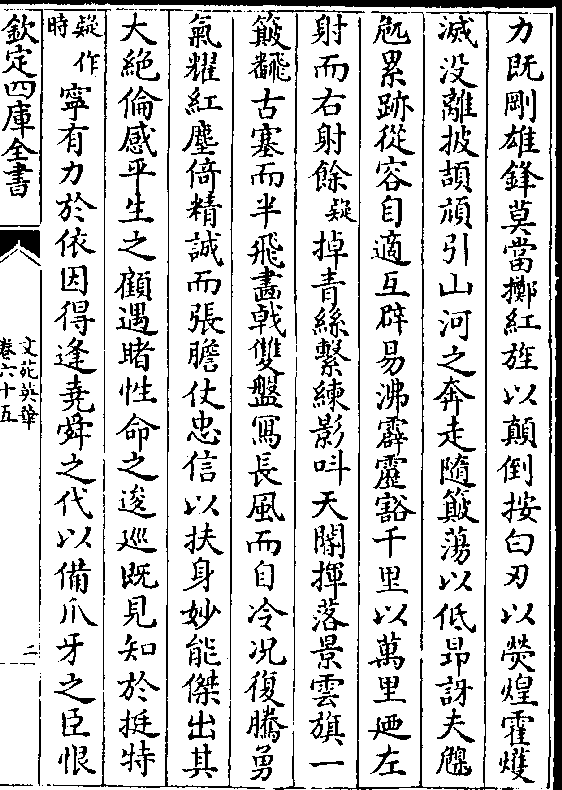 力既剛雄鋒莫當擲紅旌以顛倒按白刃以熒煌霍㸌
滅没離披頡頏引山河之奔走隨簸蕩以低昻訝夫
累跡從容自適互辟易沸霹靂豁千里以萬里廽左
射而右射餘疑掉青絲繫練影呌天關揮落景雲旗一
簸飜古塞而半飛畫戟雙盤寫長風而自冷况復騰勇
氣耀紅塵倚精誠而張膽仗忠信以扶身妙能傑出其
大絶倫感平生之顧遇睹性命之逡廵既見知於挺特
疑作時寧有力於依因得逢堯舜之代以備爪牙之臣恨
欽定四庫全書
文苑英華
卷六十五
二